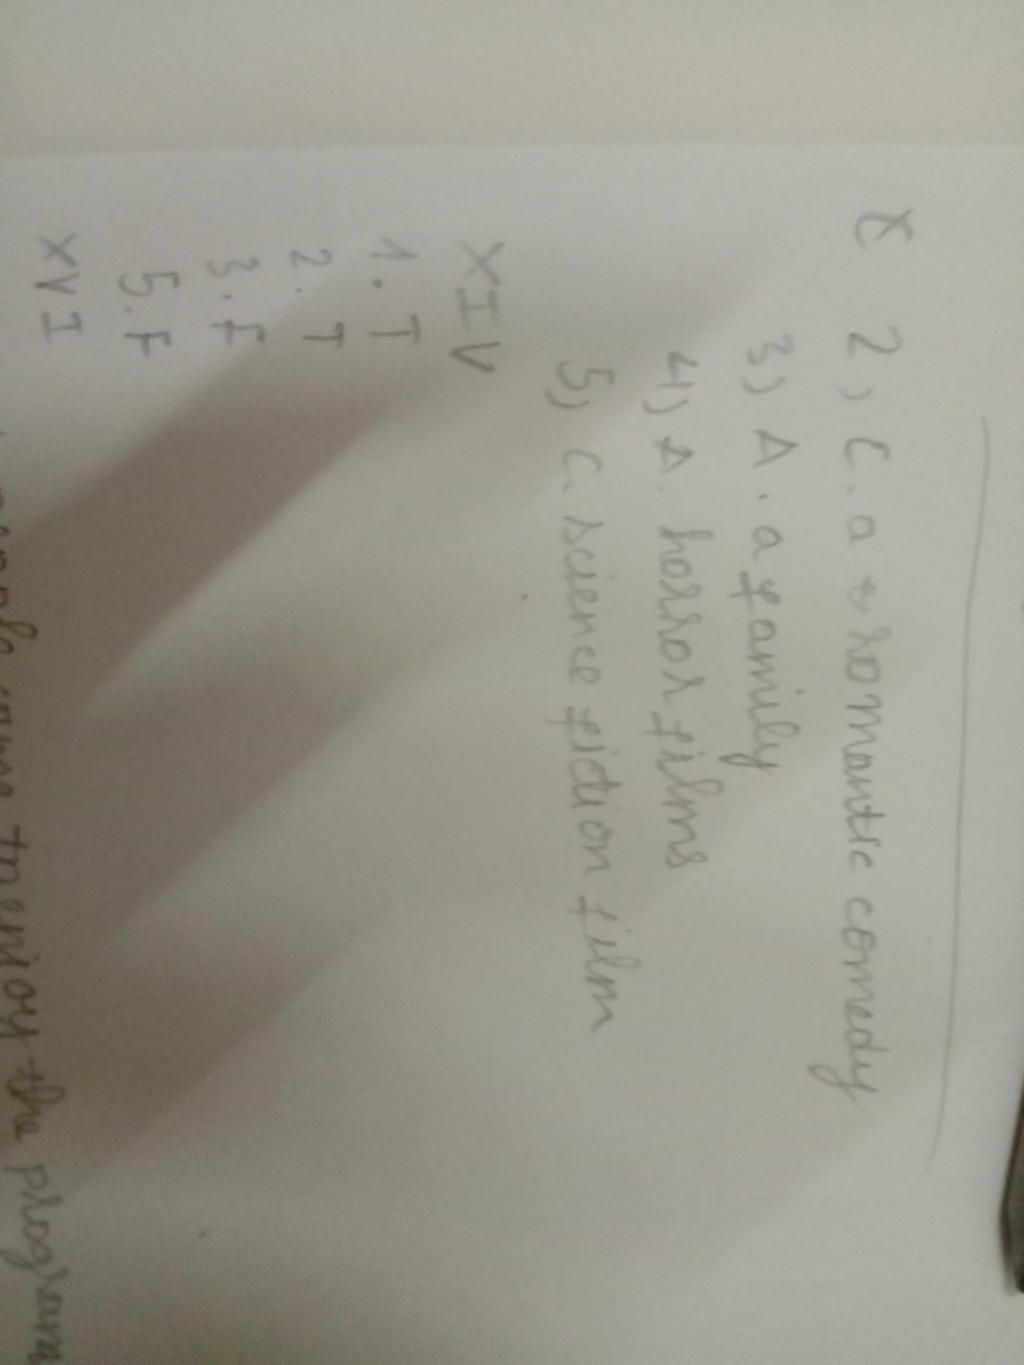 X 2) C. a romantic comedy
3) A. a family
4) A. horror films
5) C. science fiction film
XIV
1. T
2. T
3. F
5. F
XVI
people came to enjoy the program